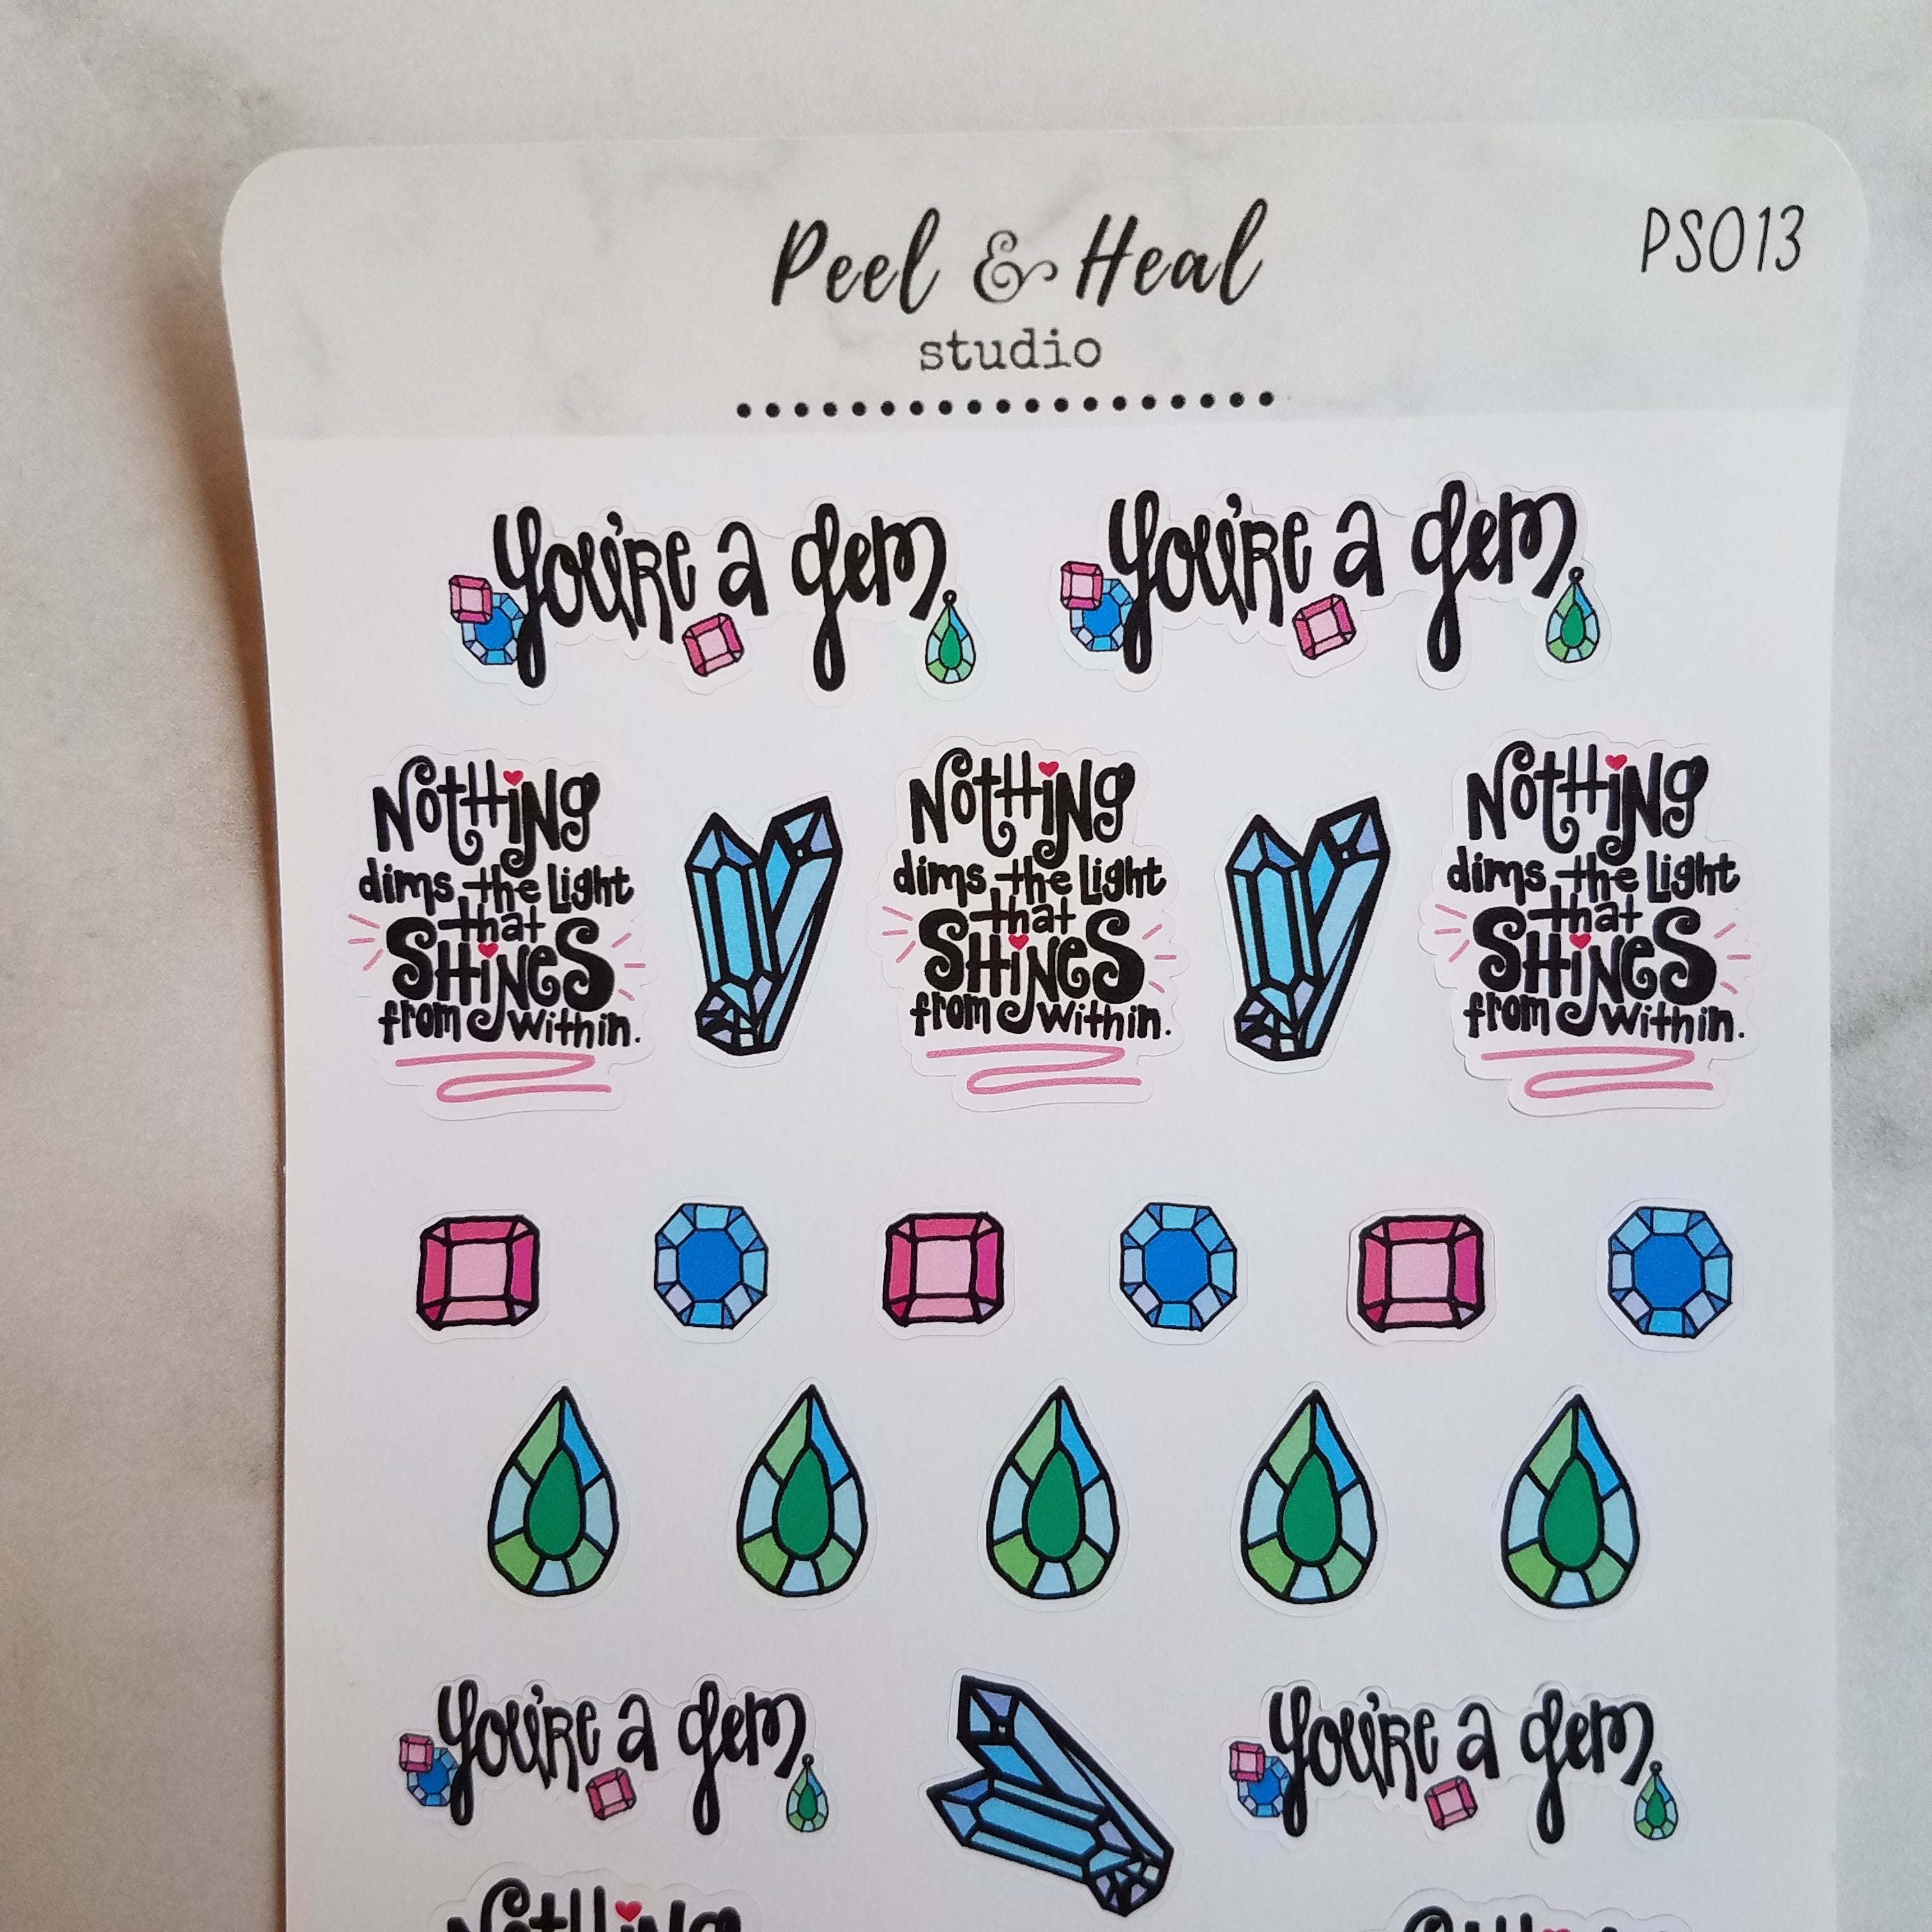 Peel & Heal
PS013
studio
You're a gem.
You're a gem.
Nothing
dims the light
that
SHiNeS
from within.
Nothing
dims the light
that
SHiNeS
from within.
Nothing
dims the light
that
SHiNeS
from within.
You're a gem.
You're a gem.
Nothing